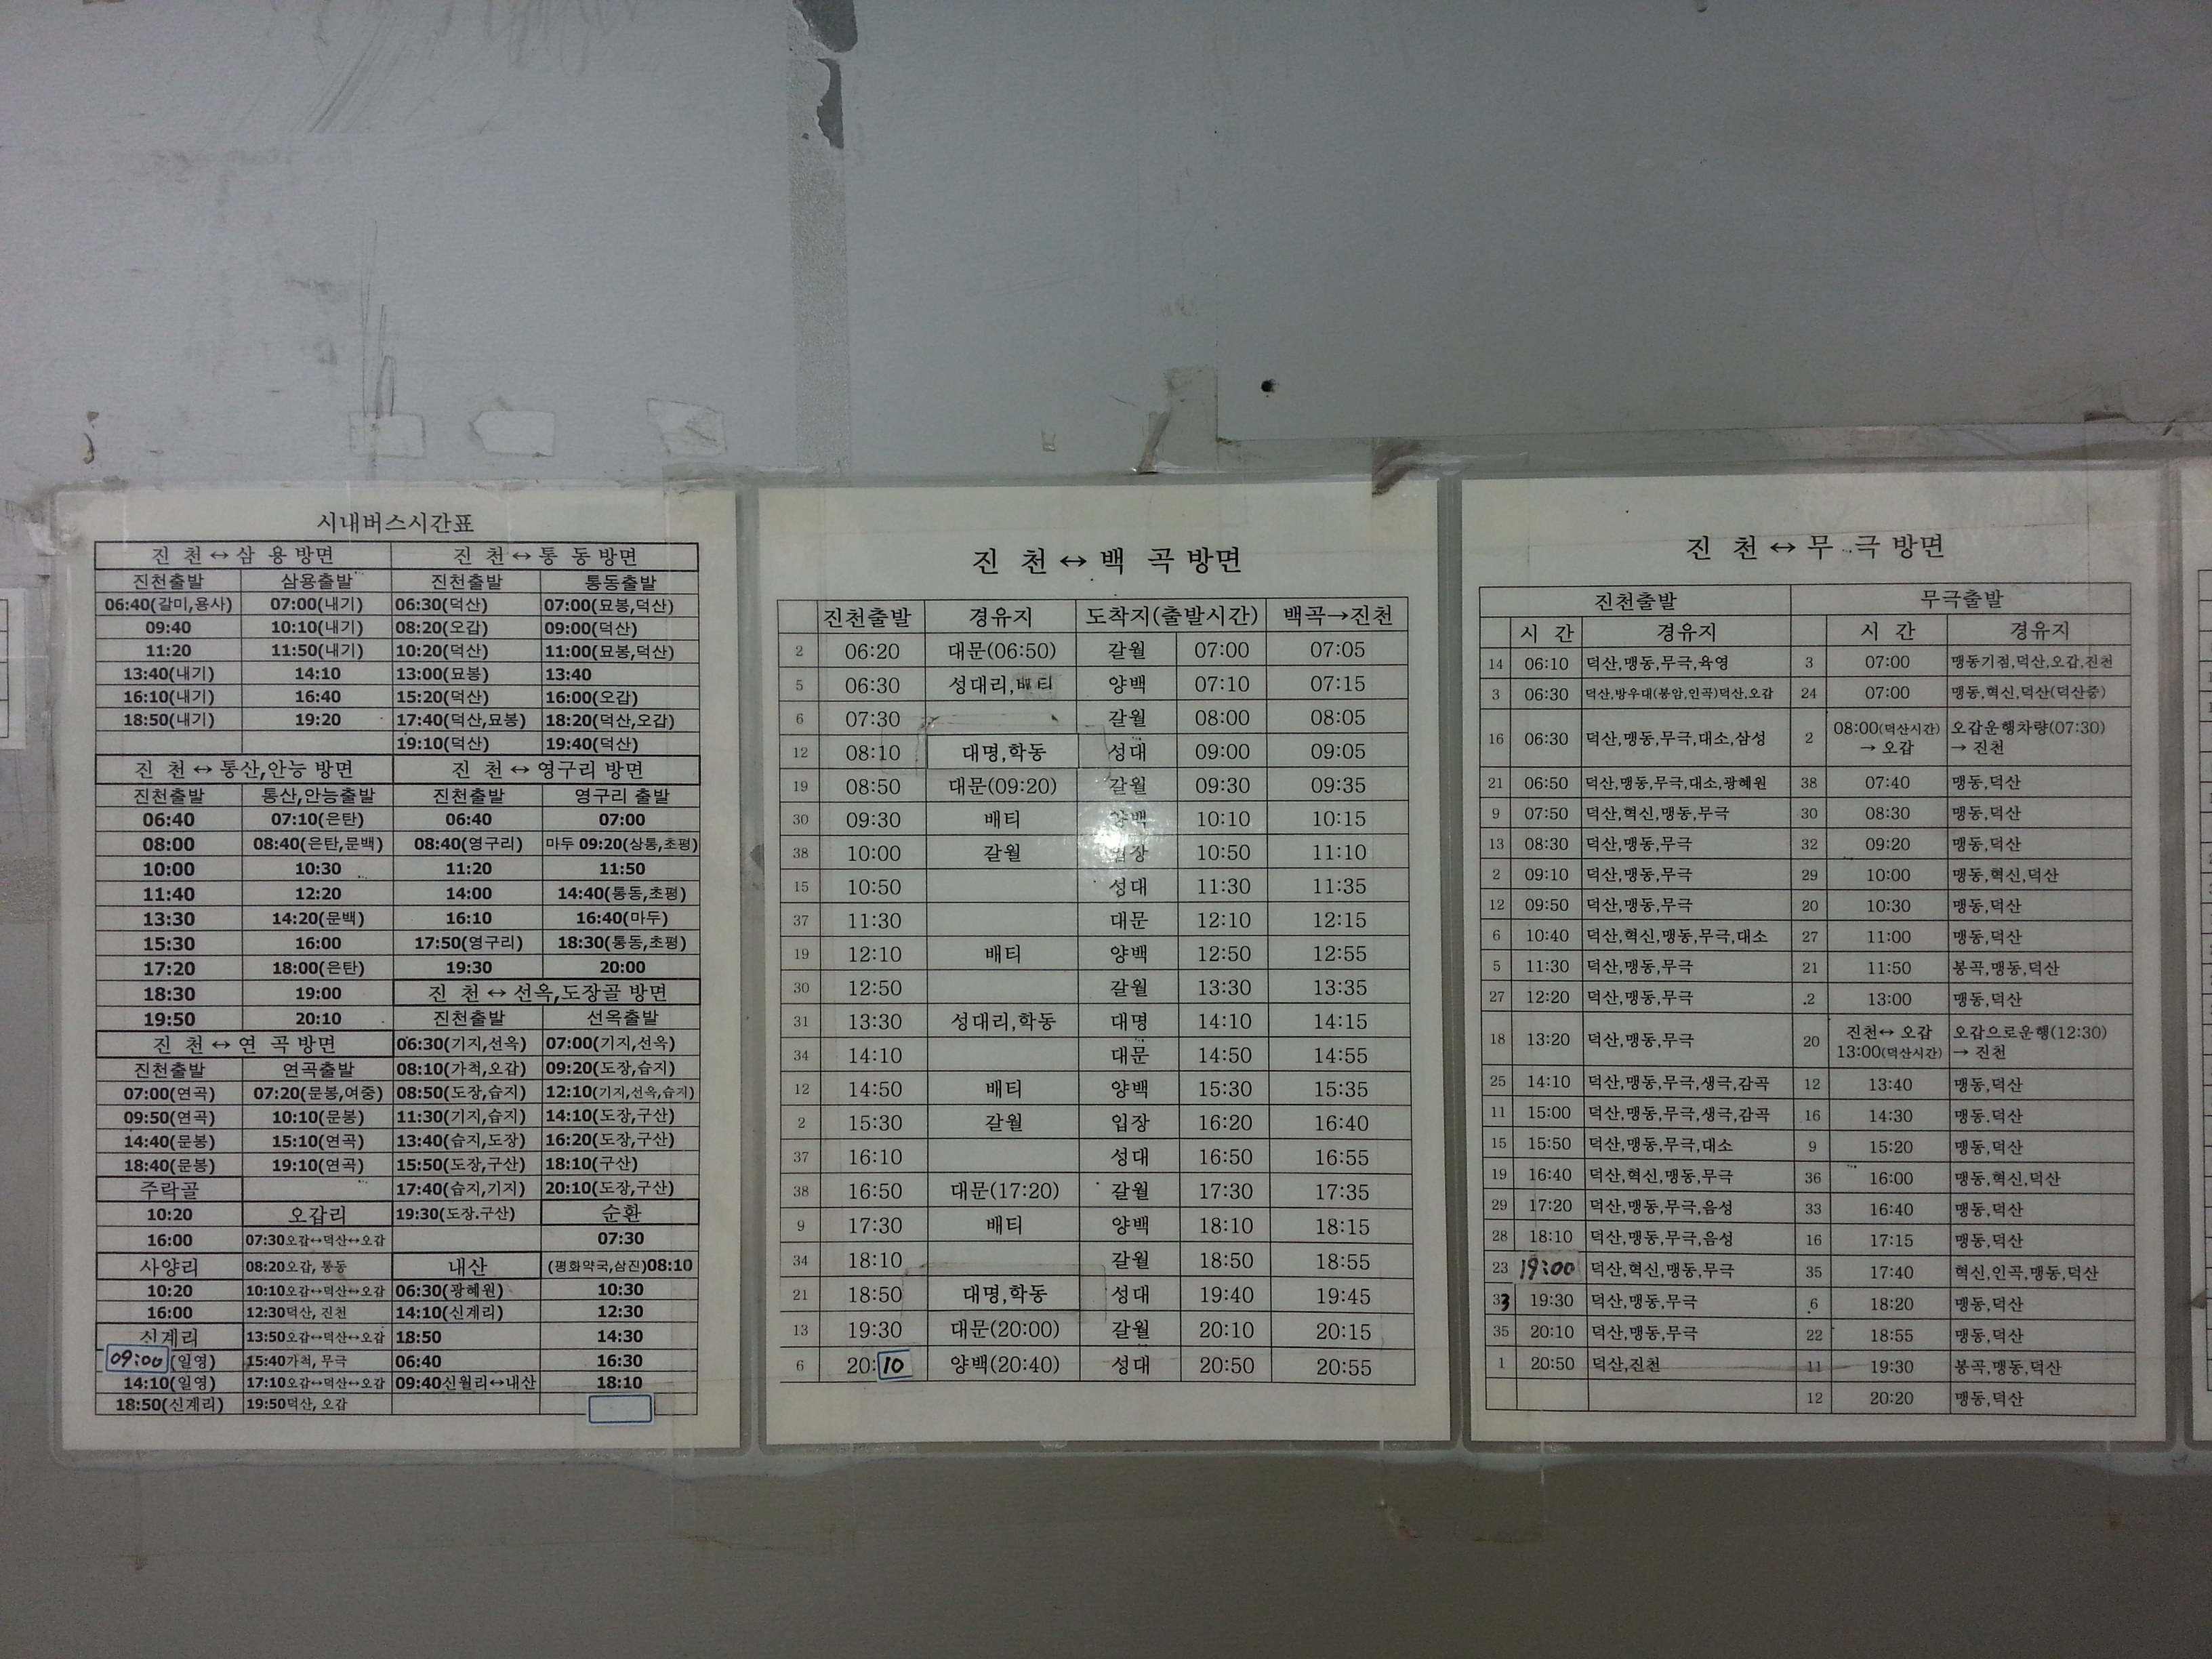 시내버스시간표
진 천 ↔ 삼 용 방면 진 천 ↔ 통 동 방면
진천출발 삼용출발 진천출발 통동출발
06:40(갈미,용사) 07:00(내기) 06:30(덕산) 07:00(묘봉,덕산)
09:40 10:10(내기) 08:20(오갑) 09:00(덕산)
11:20 11:50(내기) 10:20(덕산) 11:00(묘봉,덕산)
13:40(내기) 14:10 13:00(묘봉) 13:40
16:10(내기) 16:40 15:20(덕산) 16:00(오갑)
18:50(내기) 19:20 17:40(덕산,묘봉) 18:20(덕산,오갑)
19:10(덕산) 19:40(덕산)
진 천 ↔ 통산,안능 방면 진 천 ↔ 영구리 방면
진천출발 통산,안능출발 진천출발 영구리 출발
06:40 07:10(은탄) 06:40 07:00
08:00 08:40(은탄,문백) 08:40(영구리) 마두 09:20(상통,초평)
10:00 10:30 11:20 11:50
11:40 12:20 14:00 14:40(통동,초평)
13:30 14:20(문백) 16:10 16:40(마두)
15:30 16:00 17:50(영구리) 18:30(통동,초평)
17:20 18:00(은탄) 19:30 20:00
18:30 19:00 진 천 ↔ 선옥,도장골 방면
19:50 20:10 진천출발 선옥출발
진 천 ↔ 연 곡 방면 06:30(기지,선옥) 07:00(기지,선옥)
진천출발 연곡출발 08:10(가척,오갑) 09:20(도장,습지)
07:00(연곡) 07:20(문봉,여중) 08:50(도장,습지) 12:10(기지,선옥,습지)
09:50(연곡) 10:10(문봉) 11:30(기지,습지) 14:10(도장,구산)
14:40(문봉) 15:10(연곡) 13:40(습지,도장) 16:20(도장,구산)
18:40(문봉) 19:10(연곡) 15:50(도장,구산) 18:10(구산)
주락골 17:40(습지,기지) 20:10(도장,구산)
10:20 오갑리 19:30(도장.구산) 순환
16:00 07:30오갑↔덕산↔오갑 07:30
사양리 08:20오갑, 통동 내산 (평화약국,삼진)08:10
10:20 10:10오갑↔덕산↔오갑 06:30(광혜원) 10:30
16:00 12:30덕산, 진천 14:10(신계리) 12:30
신계리 13:50오갑↔덕산↔오갑 18:50 14:30
09:00(일영) 15:40가척, 무극 06:40 16:30
14:10(일영) 17:10오갑↔덕산↔오갑 09:40신월리↔내산 18:10
18:50(신계리) 19:50덕산, 오갑
진 천 ↔ 백 곡 방면
진천출발 경유지 도착지(출발시간) 백곡→진천
2 06:20 대문(06:50) 갈월 07:00 07:05
5 06:30 성대리,배티 양백 07:10 07:15
6 07:30 갈월 08:00 08:05
12 08:10 대명,학동 성대 09:00 09:05
19 08:50 대문(09:20) 갈월 09:30 09:35
30 09:30 배티 양백 10:10 10:15
38 10:00 갈월 입장 10:50 11:10
15 10:50 성대 11:30 11:35
37 11:30 대문 12:10 12:15
19 12:10 배티 양백 12:50 12:55
30 12:50 갈월 13:30 13:35
31 13:30 성대리,학동 대명 14:10 14:15
34 14:10 대문 14:50 14:55
12 14:50 배티 양백 15:30 15:35
2 15:30 갈월 입장 16:20 16:40
37 16:10 성대 16:50 16:55
38 16:50 대문(17:20) 갈월 17:30 17:35
9 17:30 배티 양백 18:10 18:15
34 18:10 갈월 18:50 18:55
21 18:50 대명,학동 성대 19:40 19:45
13 19:30 대문(20:00) 갈월 20:10 20:15
6 20:10 양백(20:40) 성대 20:50 20:55
진 천 ↔ 무 극 방면
진천출발 무극출발
시 간 경유지 시 간 경유지
14 06:10 덕산,맹동,무극,육영 3 07:00 맹동기점,덕산,오갑,진천
3 06:30 덕산,방우대(봉암,인곡)덕산,오갑 24 07:00 맹동,혁신,덕산(덕산중)
16 06:30 덕산,맹동,무극,대소,삼성 2 08:00(덕산시간) → 오갑 오갑운행차량(07:30) → 진천
21 06:50 덕산,맹동,무극,대소,광혜원 38 07:40 맹동,덕산
9 07:50 덕산,혁신,맹동,무극 30 08:30 맹동,덕산
13 08:30 덕산,맹동,무극 32 09:20 맹동,덕산
2 09:10 덕산,맹동,무극 29 10:00 맹동,혁신,덕산
12 09:50 덕산,맹동,무극 20 10:30 맹동,덕산
6 10:40 덕산,혁신,맹동,무극,대소 27 11:00 맹동,덕산
5 11:30 덕산,맹동,무극 21 11:50 봉곡,맹동,덕산
27 12:20 덕산,맹동,무극 2 13:00 맹동,덕산
18 13:20 덕산,맹동,무극 20 진천↔ 오갑 13:00(덕산시간) 오갑으로운행(12:30) → 진천
25 14:10 덕산,맹동,무극,생극,감곡 12 13:40 맹동,덕산
11 15:00 덕산,맹동,무극,생극,감곡 16 14:30 맹동.덕산
15 15:50 덕산,맹동,무극,대소 9 15:20 맹동,덕산
19 16:40 덕산,혁신,맹동,무극 36 16:00 맹동,혁신,덕산
29 17:20 덕산,맹동,무극,음성 33 16:40 맹동,덕산
28 18:10 덕산,맹동,무극,음성 16 17:15 맹동,덕산
23 19:00 덕산,혁신,맹동,무극 35 17:40 혁신,인곡,맹동,덕산
33 19:30 덕산,맹동,무극 6 18:20 맹동,덕산
35 20:10 덕산,맹동,무극 22 18:55 맹동,덕산
1 20:50 덕산,진천 11 19:30 봉곡,맹동,덕산
12 20:20 맹동,덕산